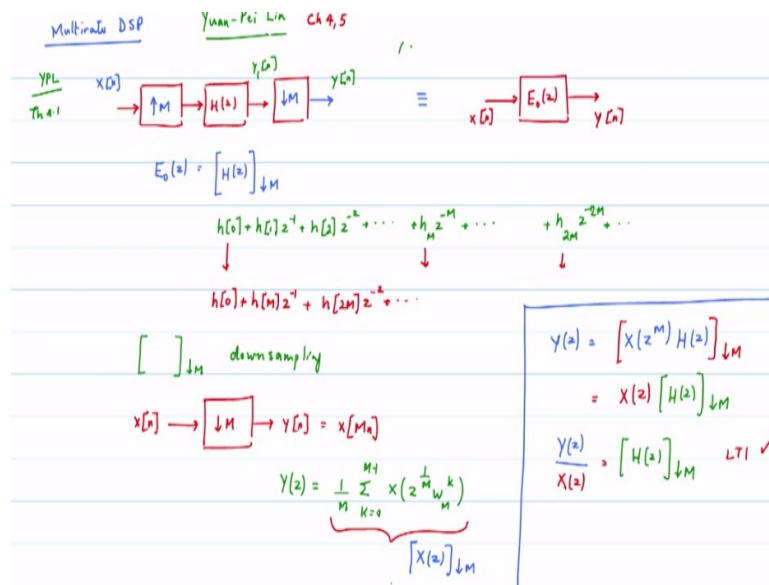 Multirate DSP Yuan-Pei Lin Ch 4,5
YPL
Th 4.1
x[n] ↑M H(z) y₁[n] ↓M y[n] ≡ x[n] E₀(z) y[n]
E₀(z) = [H(z)]↓M
h[0] + h[1] z⁻¹ + h[2] z⁻² + ··· + h_M z^-M + ··· + h_2M z^-2M + ···
h[0] + h[M] z⁻¹ + h[2M] z⁻² + ···
[ ]↓M downsampling
x[n] ↓M y[n] = x[Mn]
Y(z) = 1/M Σ_{k=0}^{M-1} X(z^{1/M} W_M^k)
[X(z)]↓M
Y(z) = [X(z^M) H(z)]↓M
= X(z) [H(z)]↓M
Y(z)/X(z) = [H(z)]↓M LTI ✓